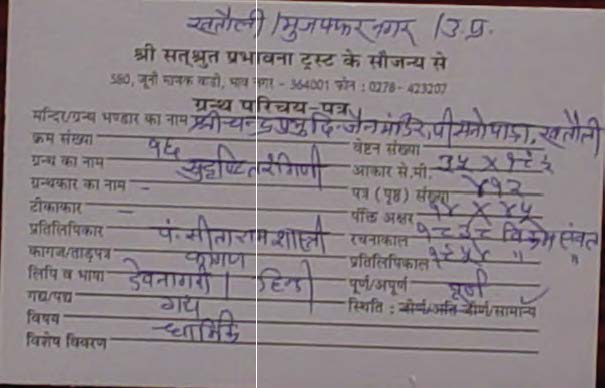 खतौली / मुजफ्फरनगर / उ.प्र.
श्री सत्श्रुत प्रभावना ट्रस्ट के सौजन्य से
580, जूनी माणेक वाडी, भाव नगर - 364001 फोन : 0278 - 423207
ग्रन्थ परिचय-पत्र
मन्दिर/ग्रन्थ भण्डार का नाम श्री चन्द्रप्रभु दि. जैन मंदिर, पीसनोपाडा, खतौली
क्रम संख्या १६ वेष्टन संख्या
ग्रन्थ का नाम सुदृष्टि तरंगिणी आकार से.मी. ३५ X १८.५
ग्रन्थकार का नाम - पत्र (पृष्ठ) संख्या ४१२
टीकाकार - पंक्ति अक्षर १४ X ४५
प्रतिलिपिकार पं. सीताराम शास्त्री रचनाकाल १८३८ विक्रम संवत
कागज/ताड़पत्र कागज प्रतिलिपिकाल १९५४ " "
लिपि व भाषा देवनागरी / हिन्दी पूर्ण/अपूर्ण पूर्ण
गद्य/पद्य गद्य स्थिति : जीर्ण/अति जीर्ण/सामान्य
विषय धार्मिक
विशेष विवरण